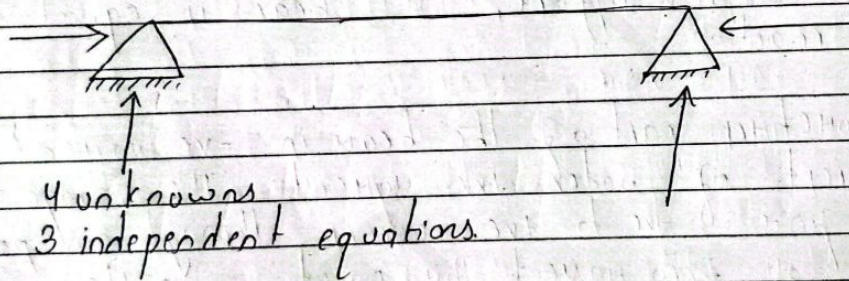 4 unknowns
3 independent equations.